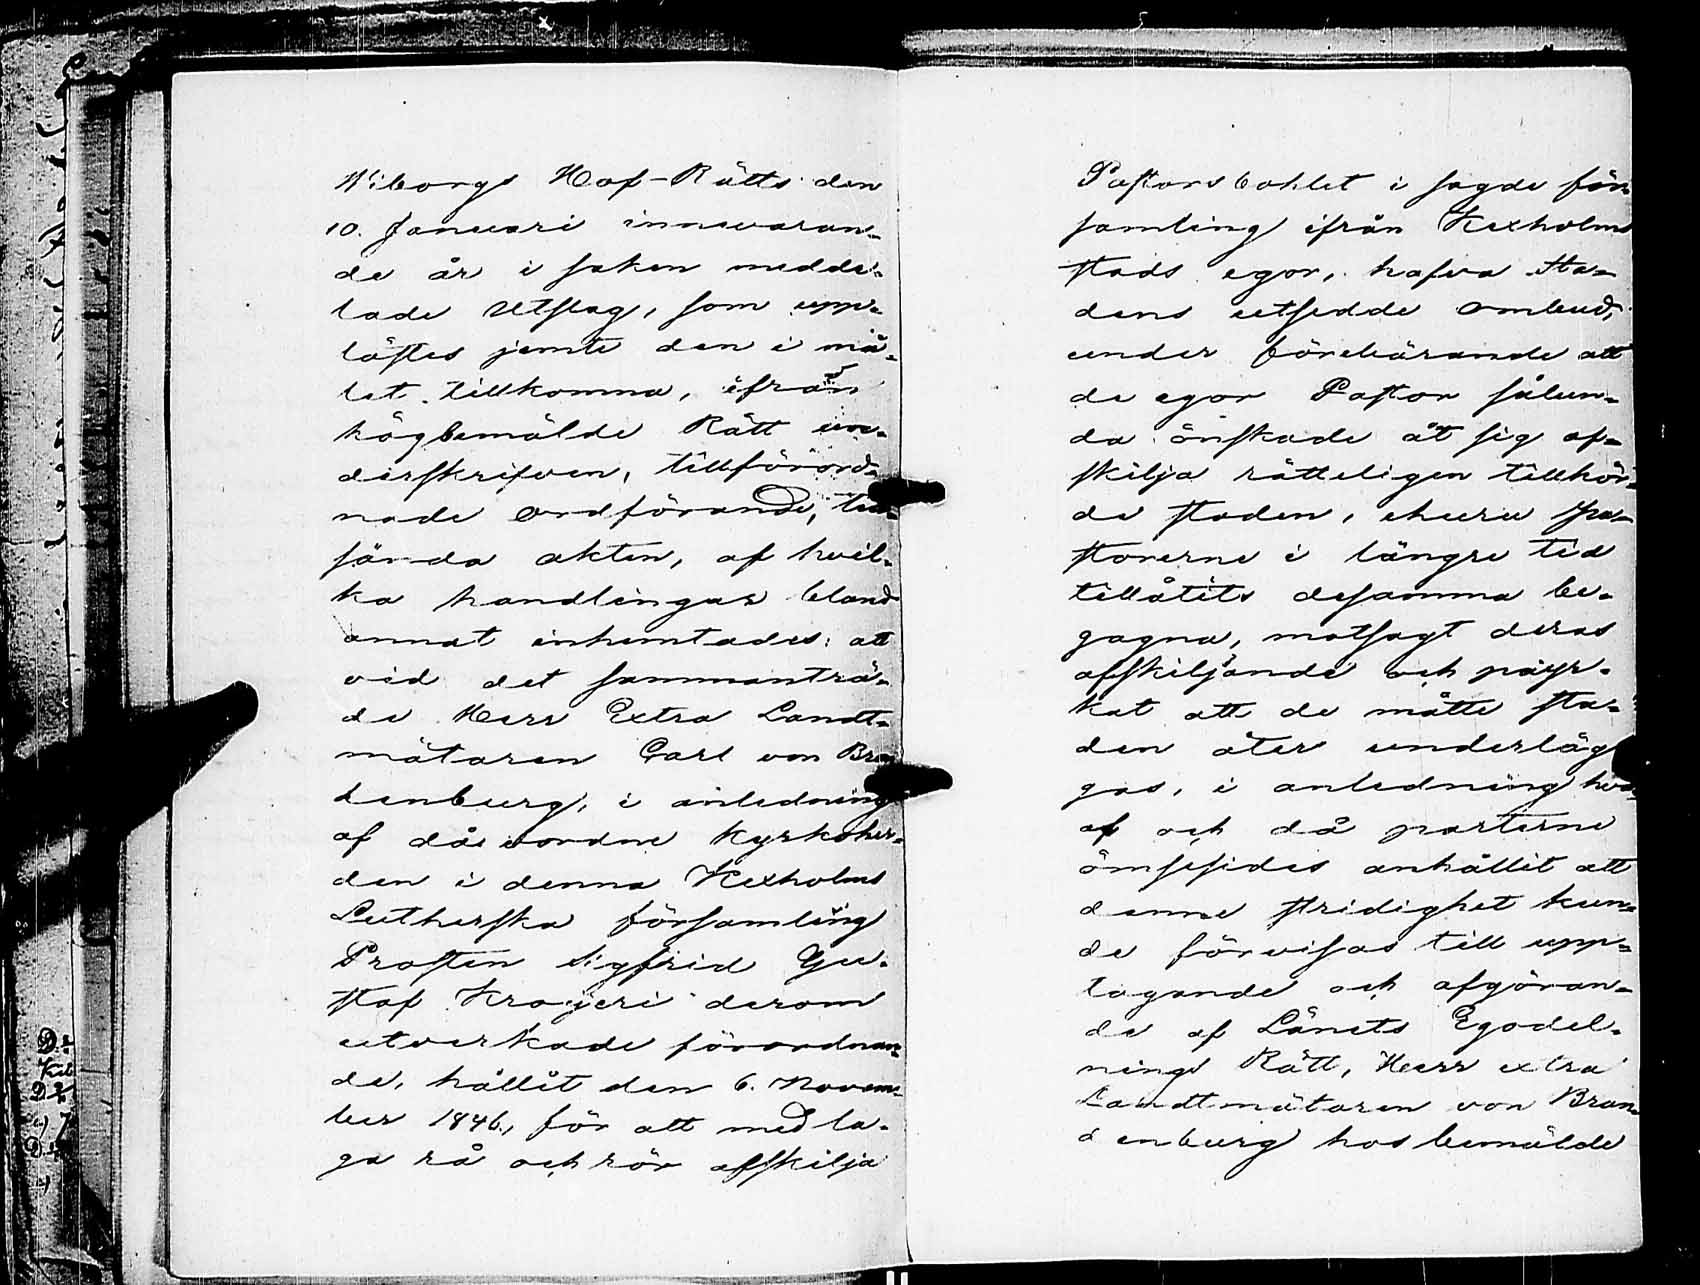 Wiborgs Hof-Rätts den
10. Januari innevaran-
de år i saken medde-
lade Utslag, som upp-
lästes jemte den i må-
let tillkomna, ifrån
högbemälde Rätt un-
derskrifven, tillförord-
nade ordförande, till-
sända akten, af hvil-
ka handlingar bland
annat inhemtades: att
vid det sammanträ-
de Herr Extra Landt-
mätaren Carl von Bran-
denburg, i anledning
af då vordne Kyrkoher-
den i denna Kexholms
Lutherska församling
Prosten Sigfrid Gu-
staf Krogeri derom
utverkade förordnan-
de, hållit den 6. Novem-
ber 1846, för att med la-
ga rå och rör afskilja
Pastorsbohlet i sagde för-
samling ifrån Kexholms
stads egor, hafva Sta-
dens utsedde ombud,
under förebärande att
de egor Pastor sålun-
da önskade åt sig af-
skilja rätteligen tillhör-
de staden, ehuru Pa-
storerne i längre tid
tillåtits desamma be-
gagna, motsagt deras
afskiljande och påyr-
kat att de måtte sta-
den åter underläg-
gas, i anledning hvar-
af och då parterne
ömsesides anhållit att
denne stridighet kun-
de förvisas till upp-
tagande och afgöran-
de af Länets Egodel-
nings Rätt, Herr extra
Landtmätaren von Bran-
denburg hos bemälde